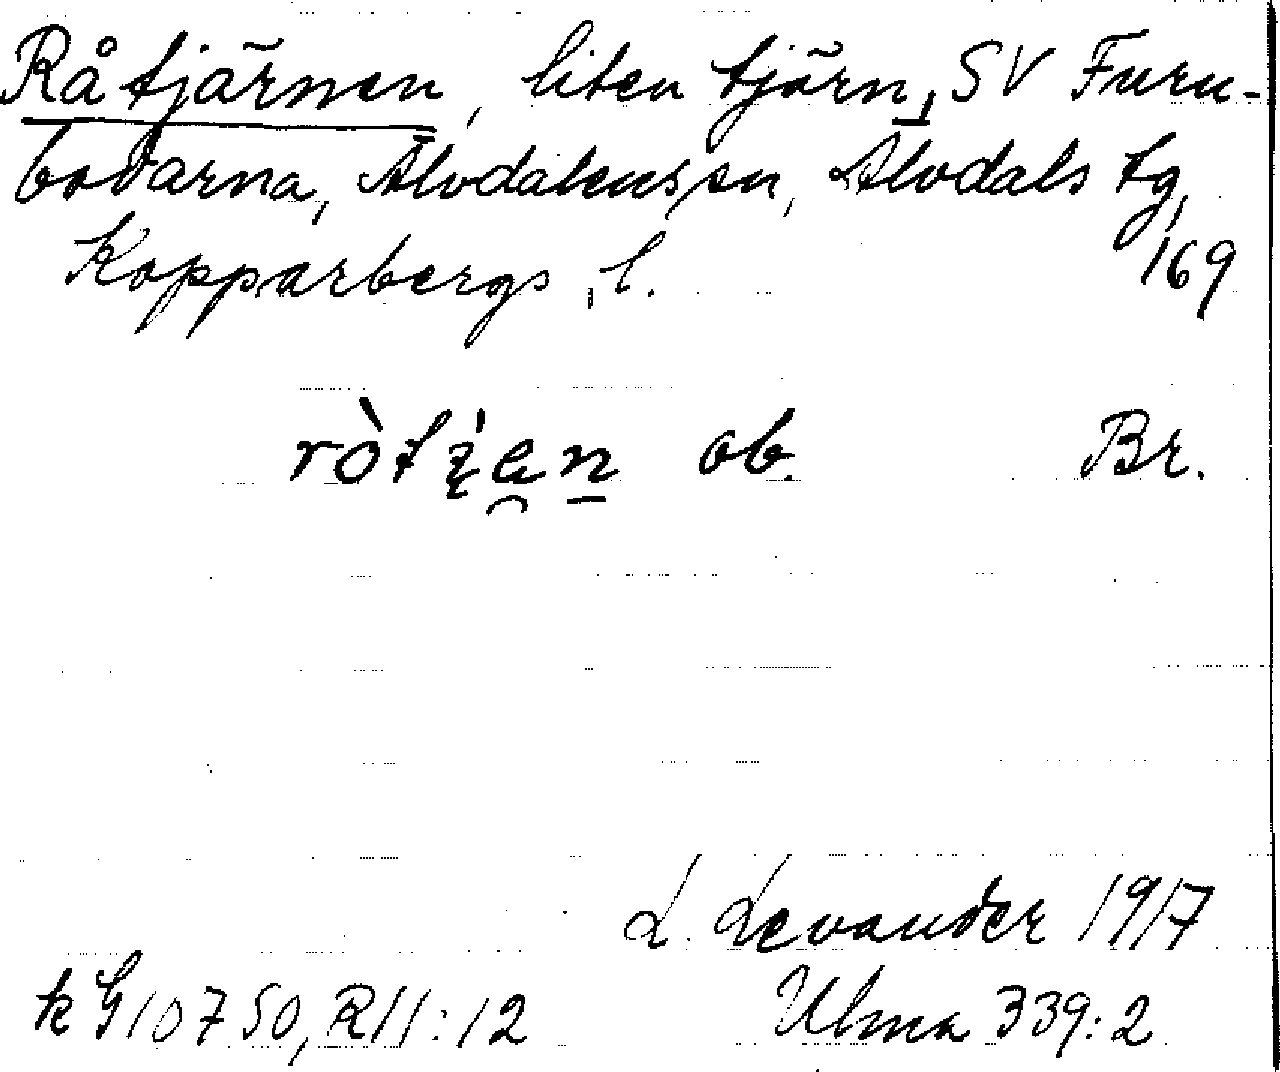 Råtjärnen, liten tjärn, SV Furu-
bodarna, Älvdalens sn, Älvdals tg,
Kopparbergs l.
169
ob. Br.
L. Levander 1917
k G 10750, R11:12 Ulma 339:2